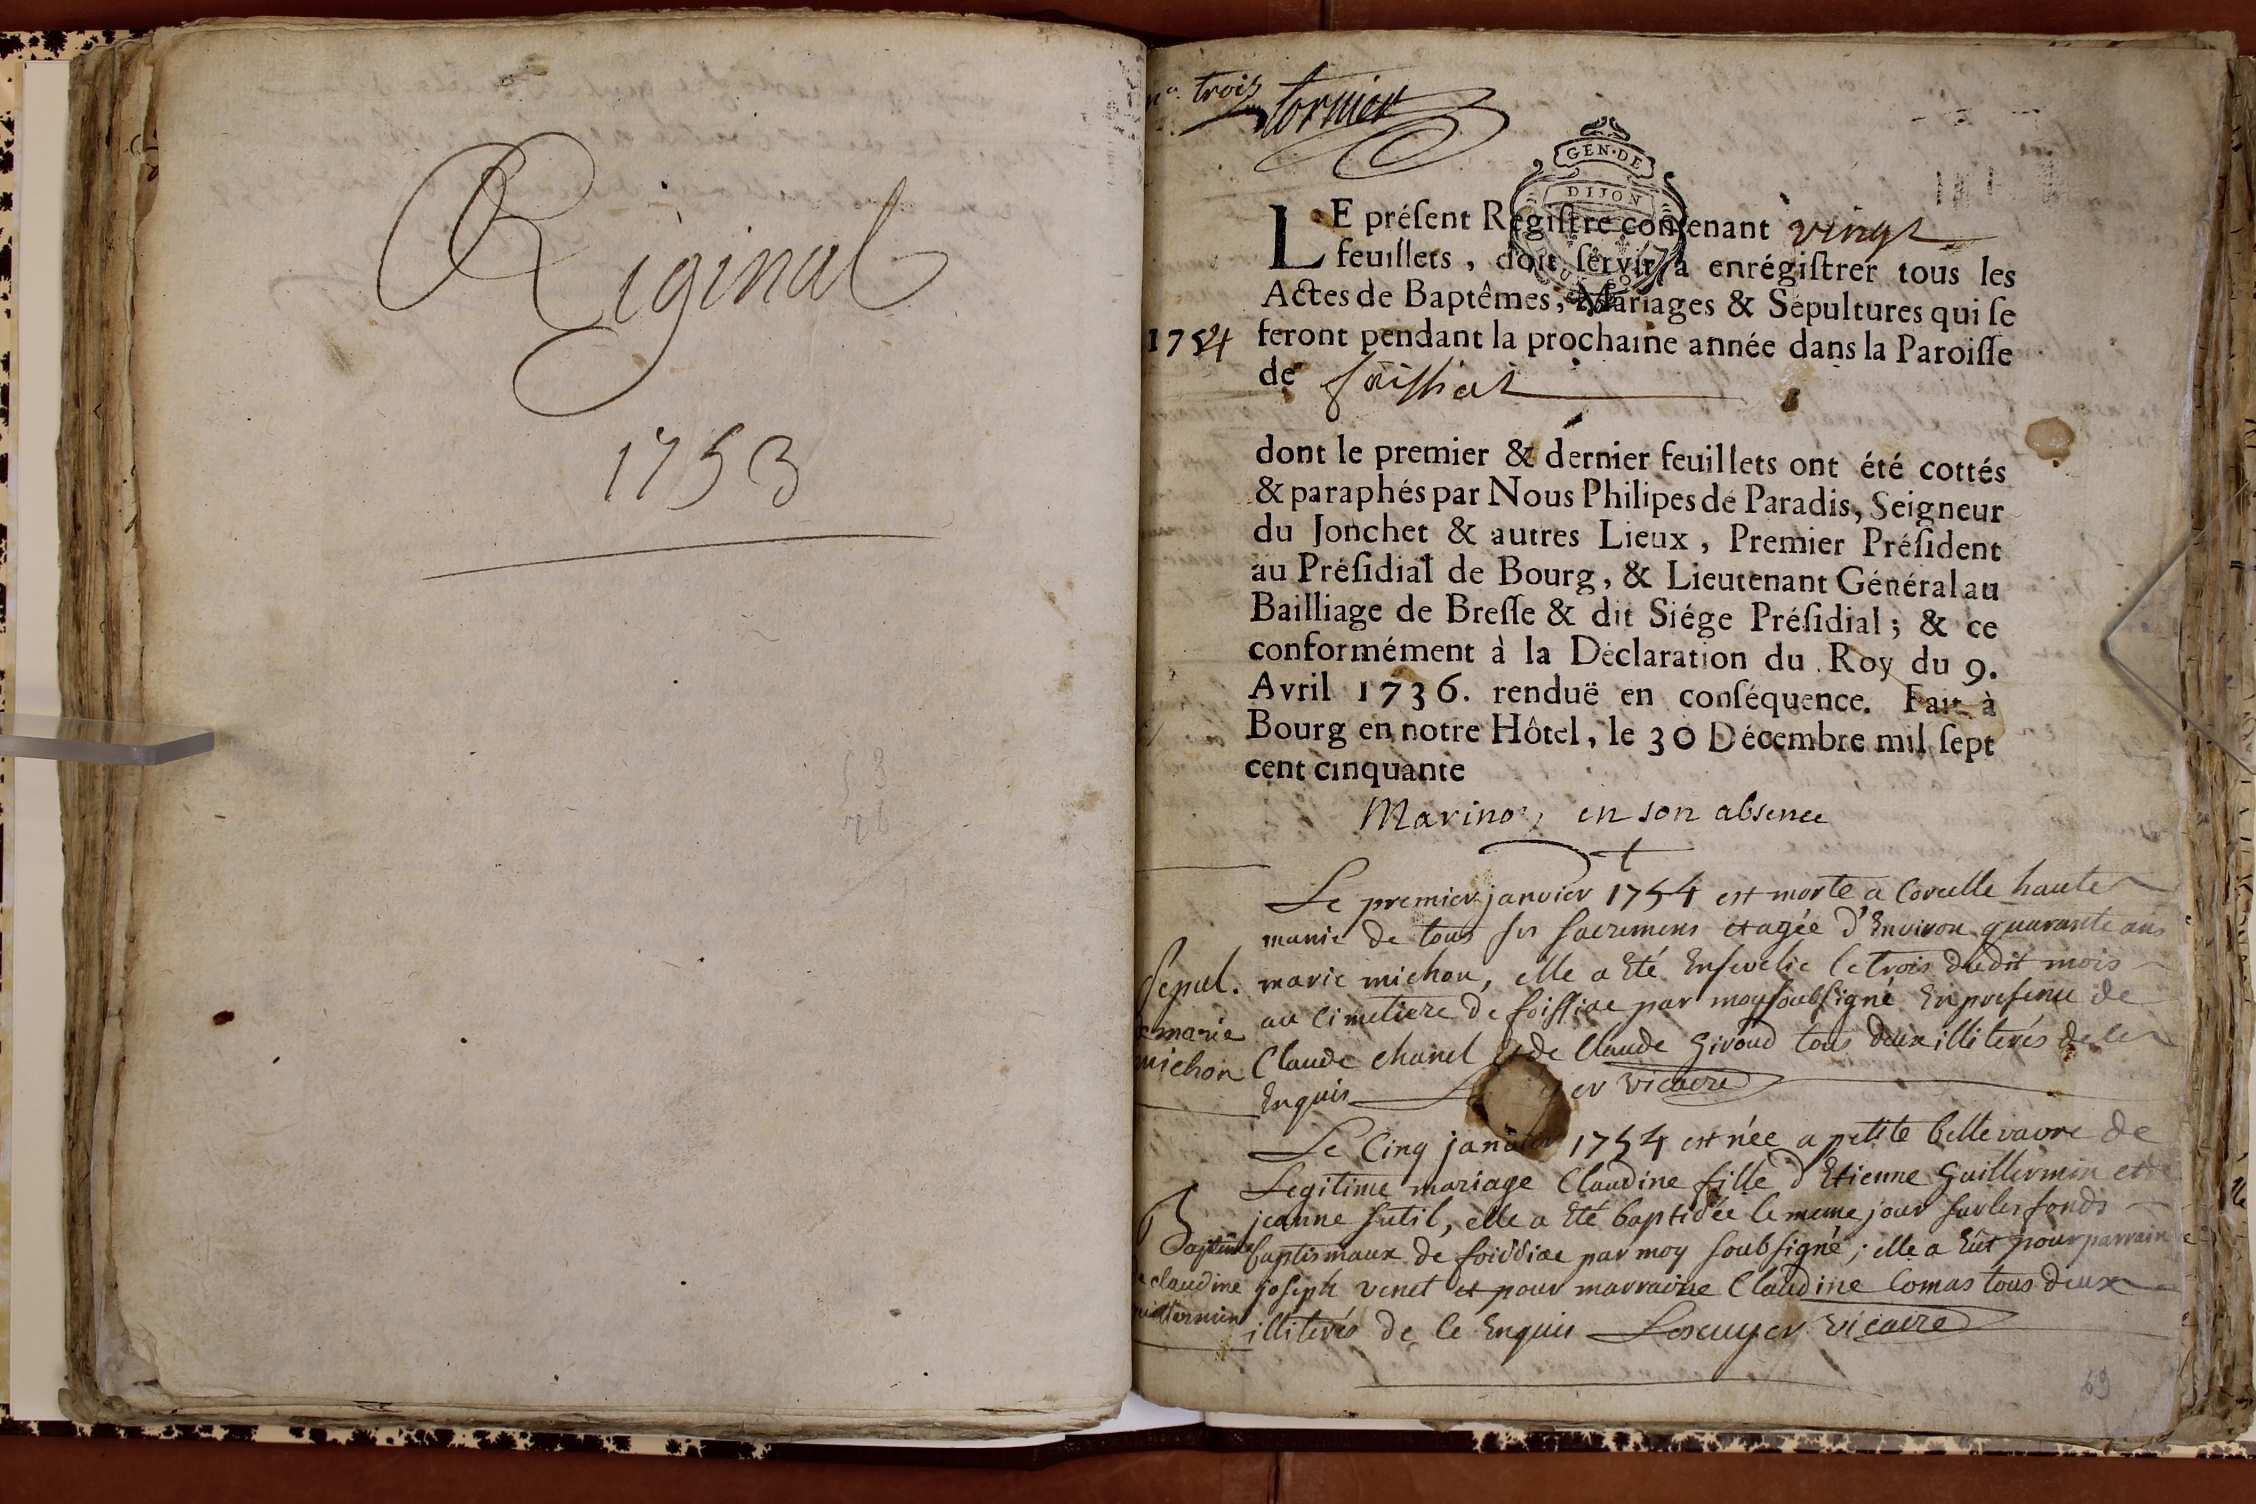 Riginal
1753
no. trois
tornier
GEN·DE
DIJON
LE préſent Regiſtre contenant vingt
feuillets, doit ſervir à enrégiſtrer tous les
Actes de Baptêmes, Mariages & Sépultures qui ſe
1754 feront pendant la prochaine année dans la Paroiſſe
de foissiat
dont le premier & dernier feuillets ont été cottés
& paraphés par Nous Philipes de Paradis, Seigneur
du Jonchet & autres Lieux, Premier Préſident
au Préſidial de Bourg, & Lieutenant Général au
Bailliage de Breſſe & dit Siége Préſidial; & ce
conformément à la Déclaration du Roy du 9.
Avril 1736. renduë en conſéquence. Fait à
Bourg en notre Hôtel, le 30 Décembre mil ſept
cent cinquante
en son absence
Le premier janvier 1754 est morte a Corcelle haute
munie de tous ses sacremens et agée d'Environ quarante ans
Sepul. marie michon, elle a Eté Ensevelie le trois dudit mois
au Cimetiere de foissiac par moy soubsigné En presence de
marie
michon
Claude chanel et de Claude Giroud tous deux illiterés de ce
Enquis vicaire
Le Cinq janvier 1754 est née a petite bellevavre de
Legitime mariage Claudine fille d'Etienne Guillermin et de
jeanne sutil, elle a Eté baptisée le meme jour sur les fonds
Bapteme
baptismaux de foissiac par moy soubsigné; elle a Eut pour parrain
claudine
joseph venet et pour marraine Claudine Comas tous deux
illiterés de ce Enquis Lescuyer vicaire
69